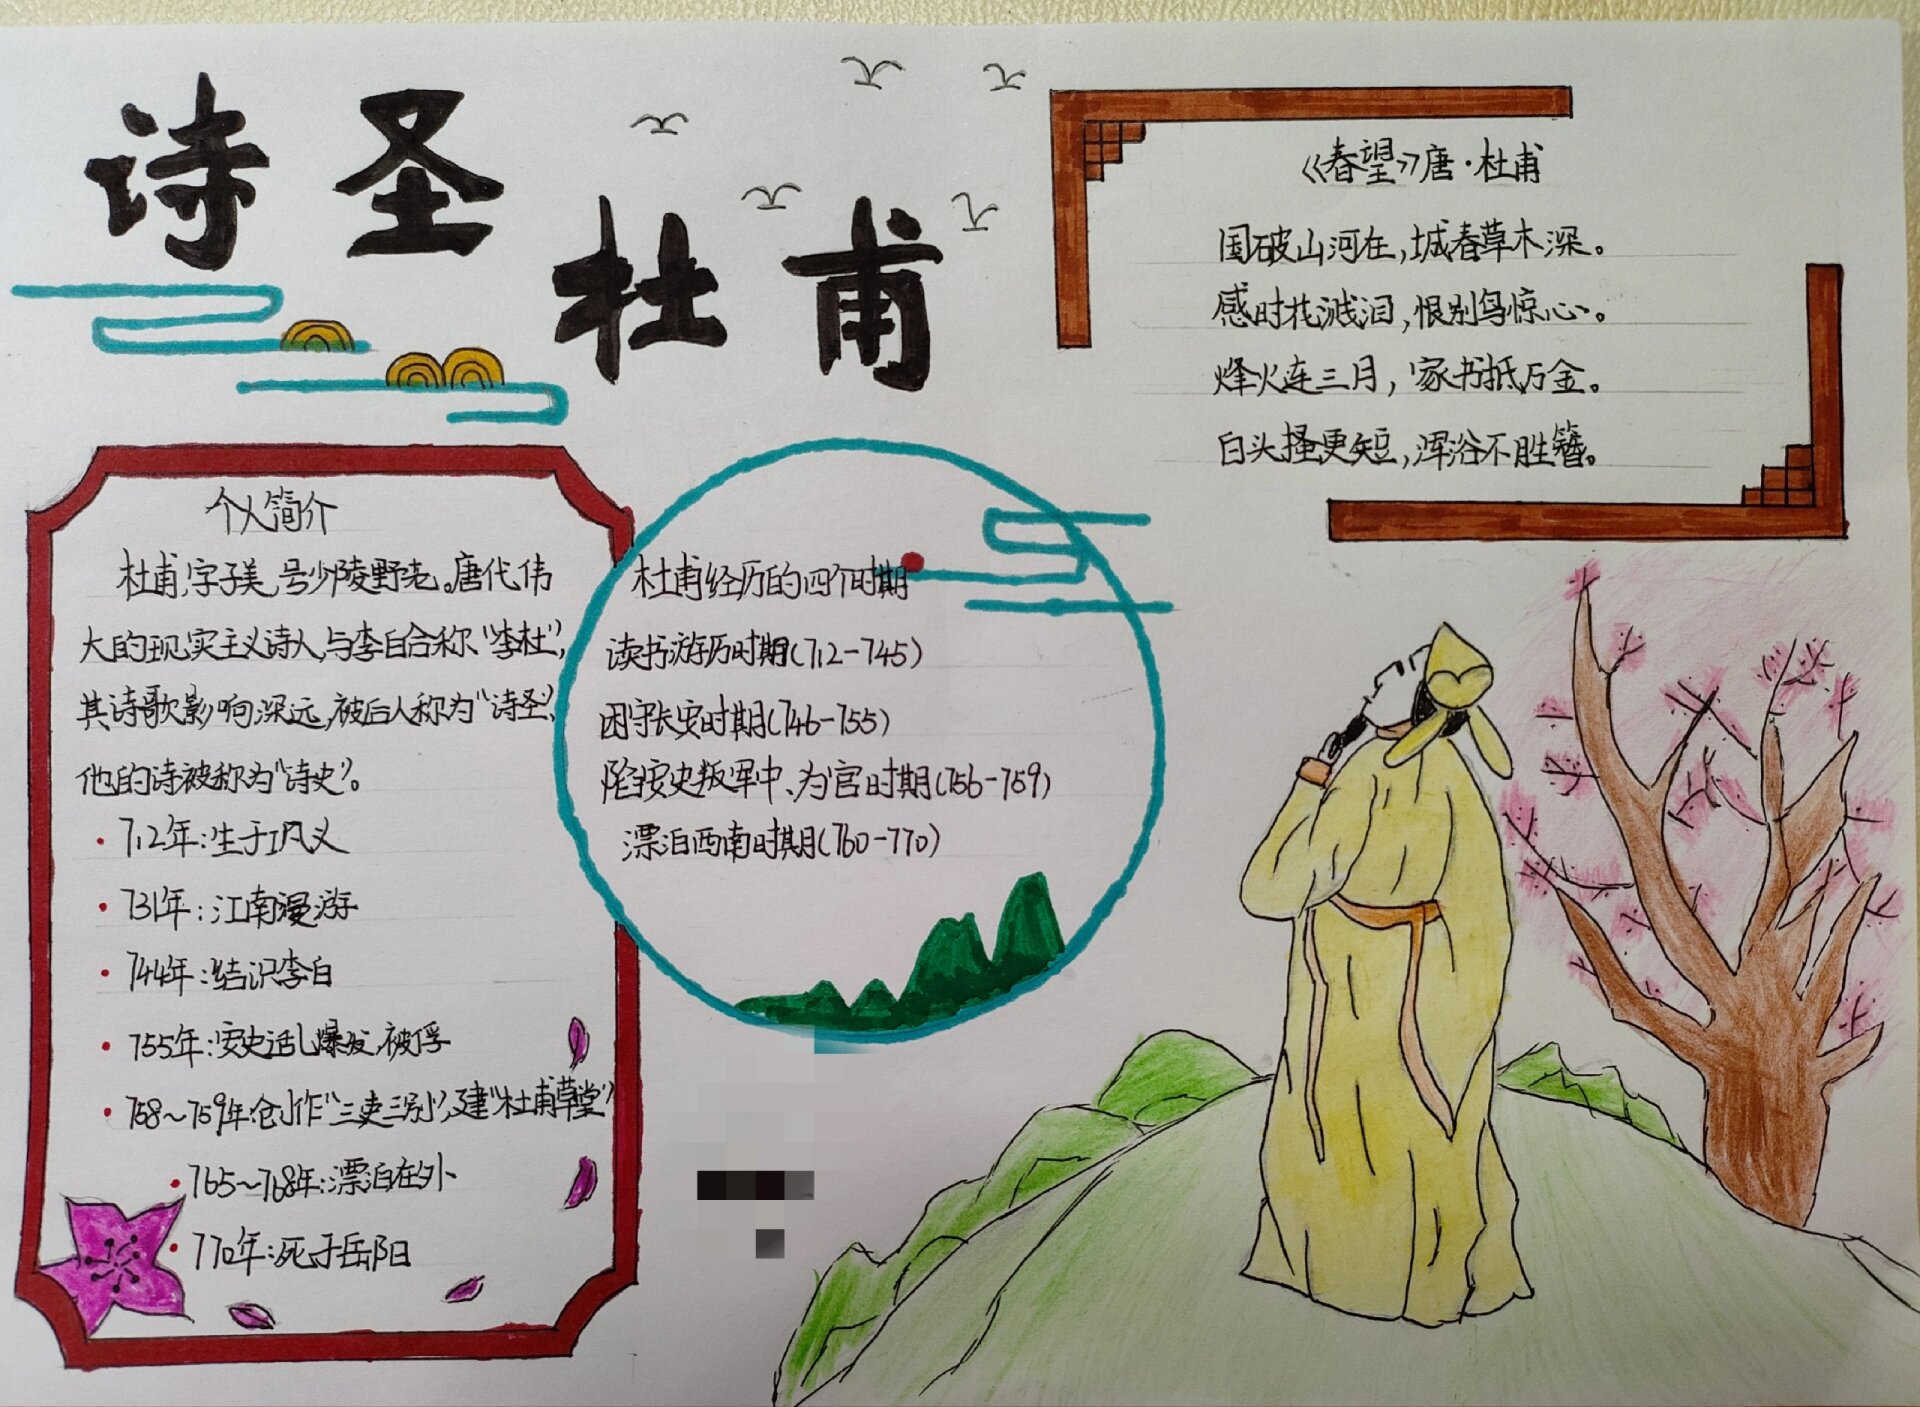 诗圣
杜甫
《春望》唐·杜甫
国破山河在,城春草木深。
感时花溅泪,恨别鸟惊心。
烽火连三月,家书抵万金。
白头搔更短,浑浴不胜簪。
个人简介
杜甫,字子美,号少陵野老。唐代伟
大的现实主义诗人,与李白合称“李杜”,
其诗歌影响深远,被后人称为“诗圣”,
他的诗被称为“诗史”。
712年:生于巩义
731年:江南漫游
744年:结识李白
755年:安史话乱爆发,被俘
758~759年:创作“三吏三别”,建“杜甫草堂”
765~768年:漂泊在外
770年:死于岳阳
杜甫经历的四个时期
读书游历时期(712-745)
困守长安时期(746-755)
陷安史叛军中、为官时期(756-759)
漂泊西南时期(760-770)